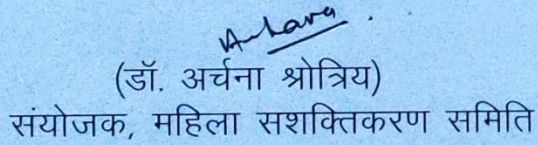 (डॉ. अर्चना श्रोत्रिय)
संयोजक, महिला सशक्तिकरण समिति